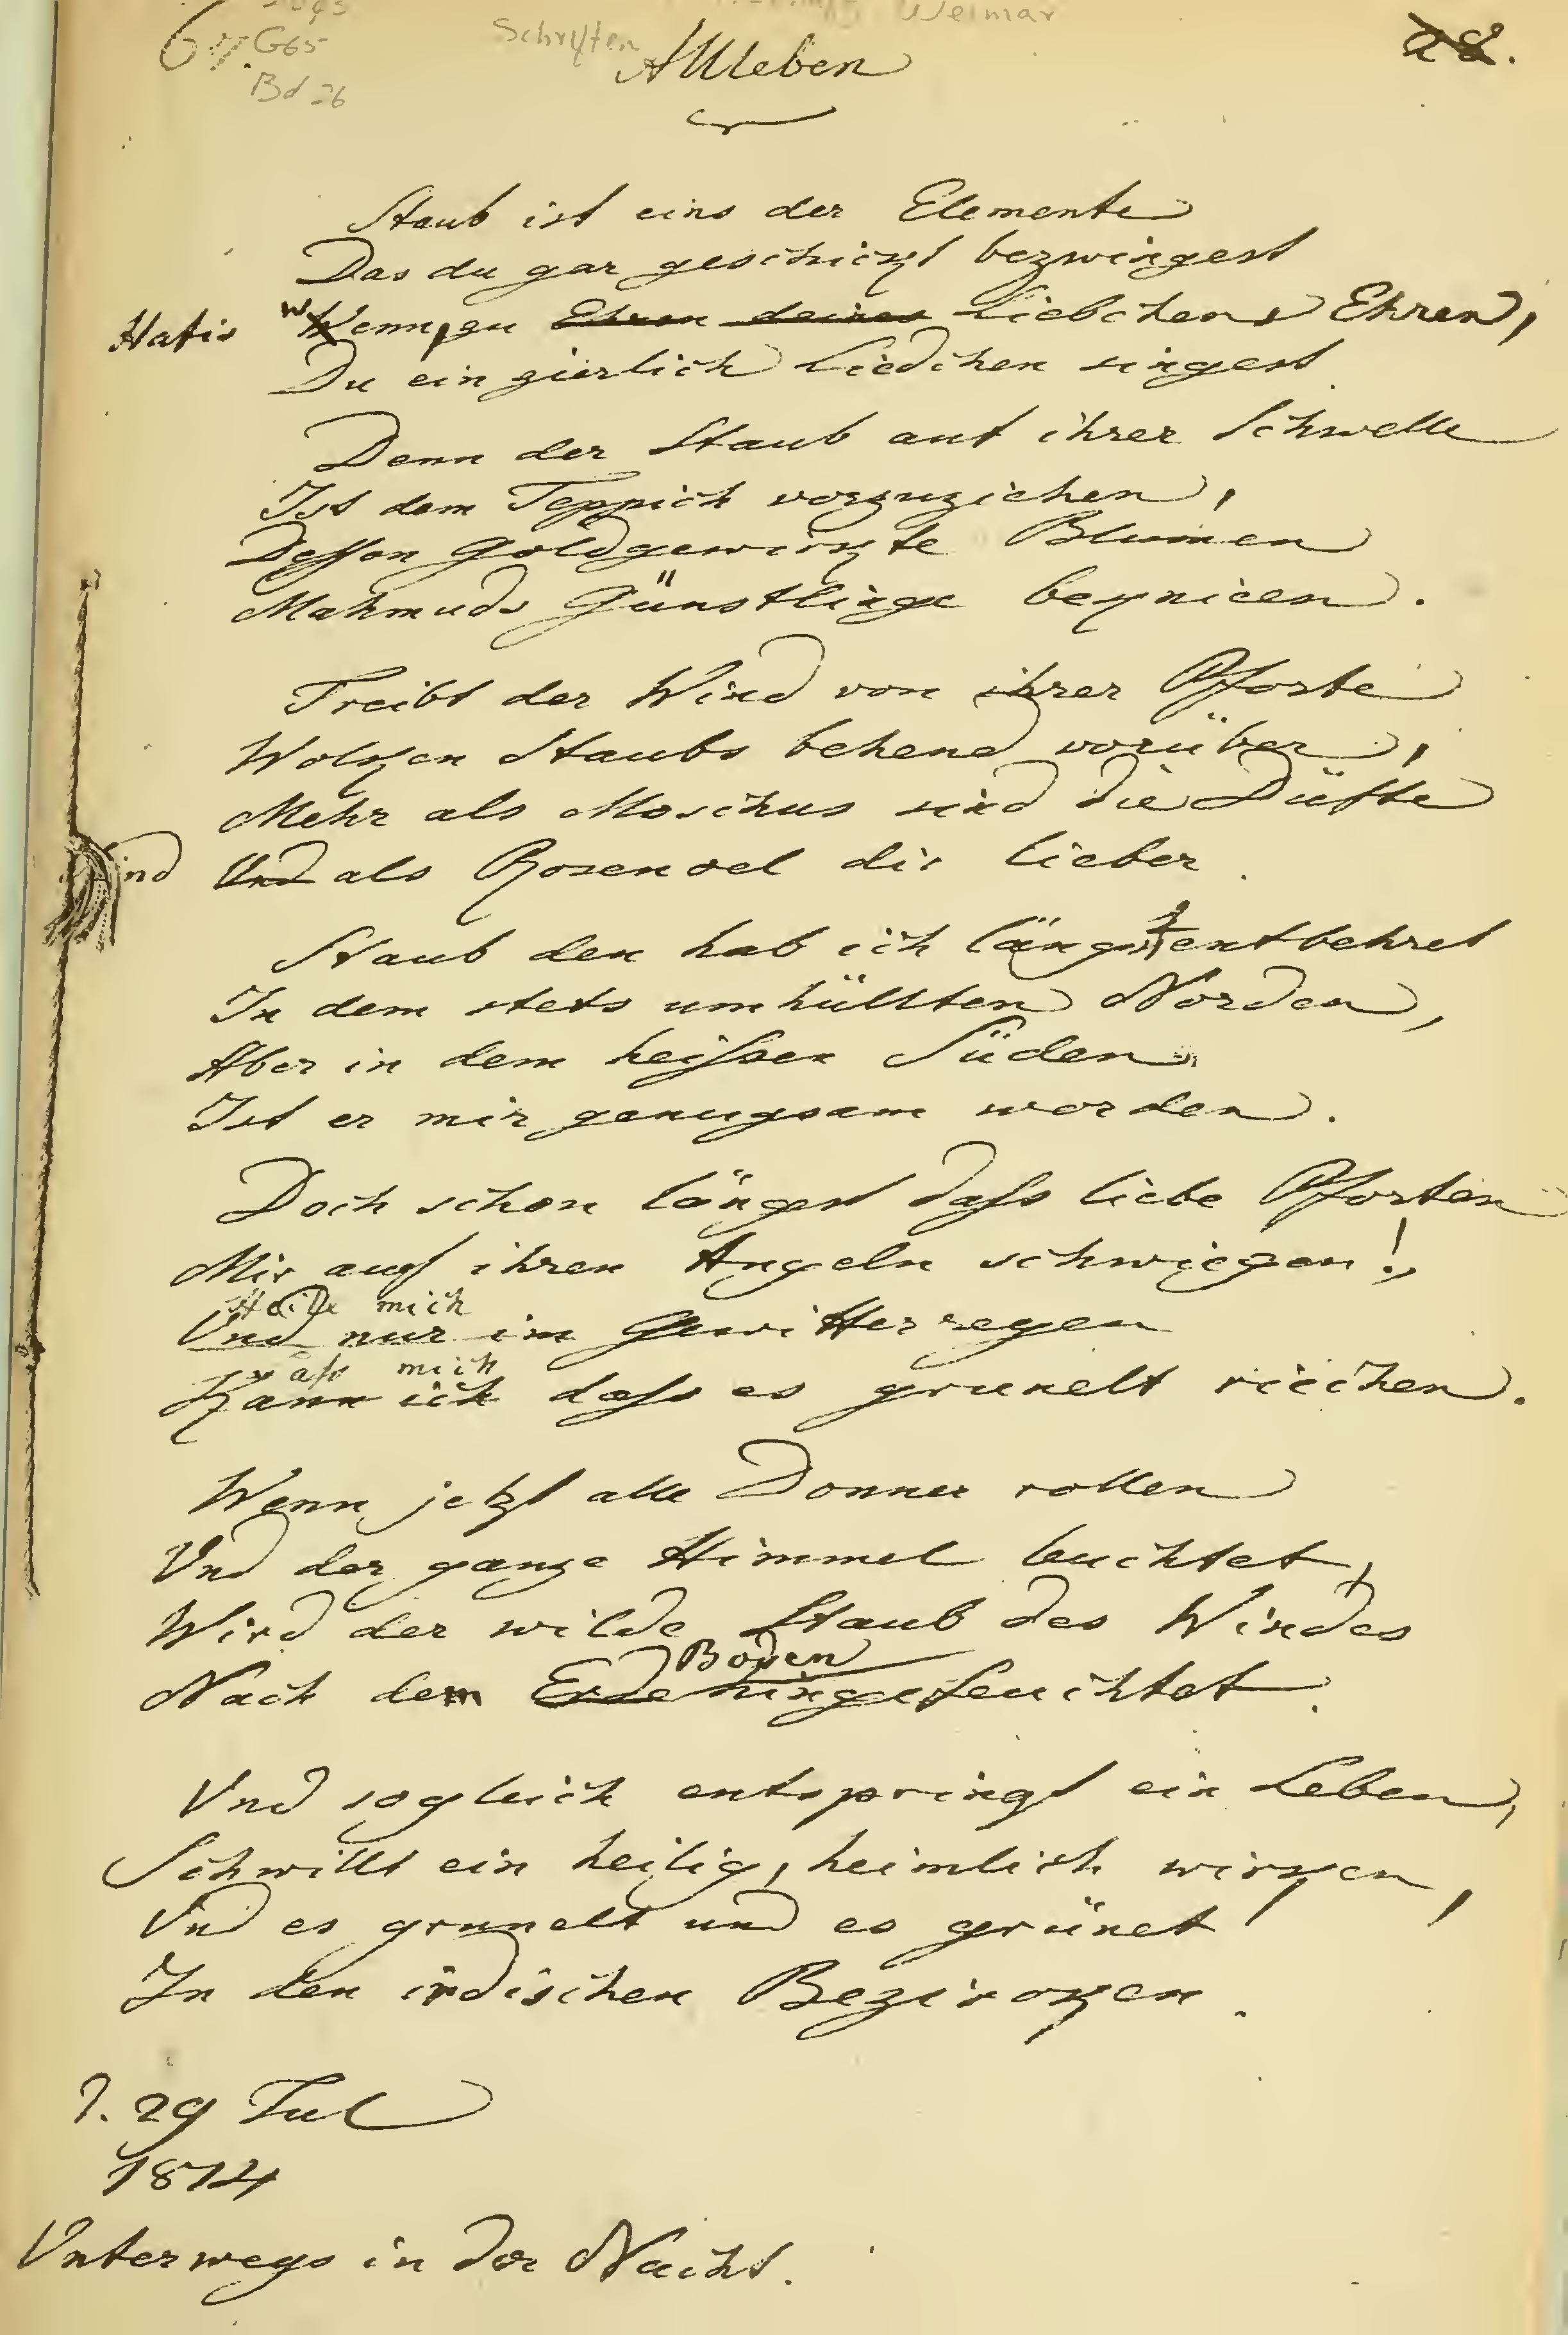 G65
Bd 26
Schriften Weimar
Allleben
28.
Staub ist eins der Elemente
Das du gar geschickt bezwingest
Hafis wWenn, zu Ehren deines Liebchens Ehren,
Du ein zierlich Liedchen singest
Denn der Staub auf ihrer Schwelle
Ist dem Teppich vorzuziehen,
Dessen Goldgewirkte Blumen
Mahmuds Günstlinge beknieen.
Treibt der Wind von ihrer Pforte
Wolken Staubs behend vorüber,
Mehr als Moschus sind die Düfte
Und Und als Rosenoel dir lieber.
Staub den hab ich längst entbehret
In dem stets umhüllten Norden,
Aber in dem heißen Süden
Ist er mir genugsam worden.
Doch schon längst daß liebe Pforten
Mir auf ihren Angeln schwiegen!,
Heile mich
Und nur im Gewitterregen
Laß mich
Kann ich daß es grunelt riechen.
Wenn jetzt alle Donner rollen
Und der ganze Himmel leuchtet,
Wird der wilde Staub des Windes
Boden
Nach dem Erde hingefeuchtet.
Und sogleich entspringt ein Leben,
Schwillt ein heilig, heimlich wirken,
Und es grunelt und es grünet
In den irdischen Bezircken.
29 Jul
1814
Unterwegs in der Nacht.